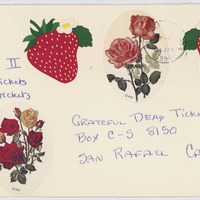 II
Tickets
tickets
GRATEFUL DEAD TICKE
BOX C-S 8150
SAN RAFAEL CA